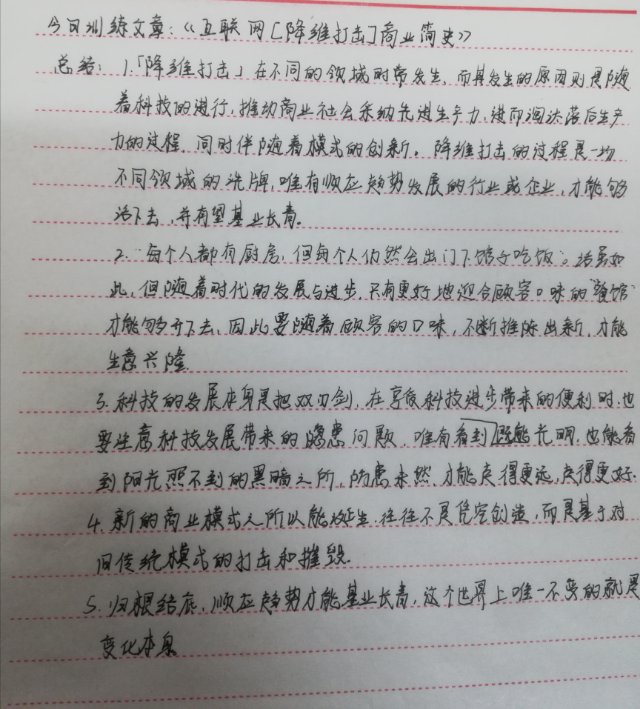 今日训练文章：《互联网[降维打击]商业简史》
总结：1.「降维打击」在不同的领域时常发生，而其发生的原因则是随
着科技的进行，推动商业社会采纳先进生产力，进而淘汰落后生产
力的过程，同时伴随着模式的创新。降维打击的过程是一场
不同领域的洗牌，唯有顺应趋势发展的行业或企业，才能够
活下去，并有望基业长青。
2."每个人都有厨房，但每个人仍然会出门下馆子吃饭"。话虽如
此，但随着时代的发展与进步，只有更好地迎合顾客口味的"餐馆"
才能够开下去，因此要随着顾客的口味，不断推陈出新，才能
生意兴隆
3.科技的发展本身是把双刃剑，在享受科技进步带来的便利时，也
要注意科技发展带来的隐患问题，唯有看到光明，也能看
到阳光照不到的黑暗之所，防患未然，才能走得更远，走得更好.
4.新的商业模式之所以能诞生，往往不是凭空创造，而是基于对
旧传统模式的打击和摧毁.
5.归根结底，顺应趋势才能基业长青，这个世界上唯一不变的就是
变化本身